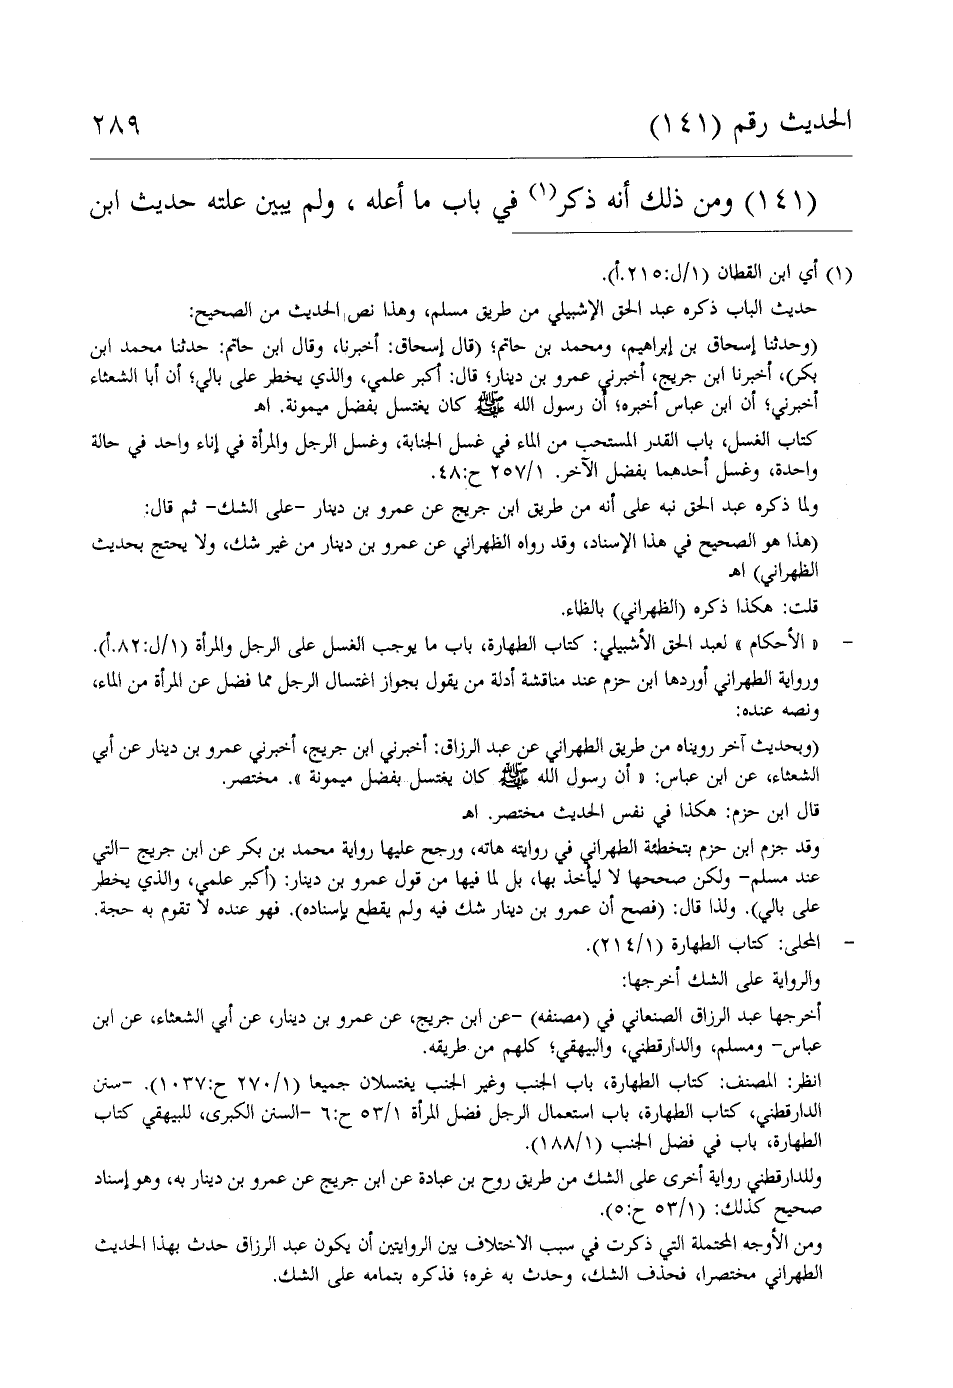 الحديث رقم (١٤١)
٢٨٩
(١٤١) ومن ذلك أنه ذكر(١) في باب ما أعله ، ولم يبين علته حديث ابن
(١) أي ابن القطان (١/ل:٢١٥.أ).
حديث الباب ذكره عبد الحق الإشبيلي من طريق مسلم، وهذا نص الحديث من الصحيح:
(وحدثنا إسحاق بن إبراهيم، ومحمد بن حاتم؛ (قال إسحاق: أخبرنا، وقال ابن حاتم: حدثنا محمد ابن
بكر)، أخبرنا ابن جريج، أخبرني عمرو بن دينار؛ قال: أكبر علمي، والذي يخطر على بالي؛ أن أبا الشعثاء
أخبرني؛ أن ابن عباس أخبره؛ أن رسول الله ﷺ كان يغتسل بفضل ميمونة. اهـ
كتاب الغسل، باب القدر المستحب من الماء في غسل الجنابة، وغسل الرجل والمرأة في إناء واحد في حالة
واحدة، وغسل أحدهما بفضل الآخر. ٢٥٧/١ ح:٤٨.
ولما ذكره عبد الحق نبه على أنه من طريق ابن جريج عن عمرو بن دينار -على الشك- ثم قال:
(هذا هو الصحيح في هذا الإسناد، وقد رواه الظهراني عن عمرو بن دينار من غير شك، ولا يحتج بحديث
الظهراني) اهـ
قلت: هكذا ذكره (الظهراني) بالظاء.
- « الأحكام » لعبد الحق الأشبيلي: كتاب الطهارة، باب ما يوجب الغسل على الرجل والمرأة (١/ل:٨٢.أ).
ورواية الطهراني أوردها ابن حزم عند مناقشة أدلة من يقول بجواز اغتسال الرجل مما فضل عن المرأة من الماء،
ونصه عنده:
(وبحديث آخر رويناه من طريق الطهراني عن عبد الرزاق: أخبرني ابن جريج، أخبرني عمرو بن دينار عن أبي
الشعثاء، عن ابن عباس: « أن رسول الله ﷺ كان يغتسل بفضل ميمونة ». مختصر.
قال ابن حزم: هكذا في نفس الحديث مختصر. اهـ
وقد جزم ابن حزم بتخطئة الطهراني في روايته هاته، ورجح عليها رواية محمد بن بكر عن ابن جريج -التي
عند مسلم- ولكن صححها لا ليأخذ بها، بل لما فيها من قول عمرو بن دينار: (أكبر علمي، والذي يخطر
على بالي). ولذا قال: (فصح أن عمرو بن دينار شك فيه ولم يقطع بإسناده). فهو عنده لا تقوم به حجة.
- المحلى: كتاب الطهارة (٢١٤/١).
والرواية على الشك أخرجها:
أخرجها عبد الرزاق الصنعاني في (مصنفه) -عن ابن جريج، عن عمرو بن دينار، عن أبي الشعثاء، عن ابن
عباس- ومسلم، والدارقطني، والبيهقي؛ كلهم من طريقه.
انظر: المصنف: كتاب الطهارة، باب الجنب وغير الجنب يغتسلان جميعا (٢٧٠/١ ح:١٠٣٧). -سنن
الدارقطني، كتاب الطهارة، باب استعمال الرجل فضل المرأة ٥٣/١ ح:٦ -السنن الكبرى، للبيهقي كتاب
الطهارة، باب في فضل الجنب (١٨٨/١).
وللدارقطني رواية أخرى على الشك من طريق روح بن عبادة عن ابن جريج عن عمرو بن دينار به، وهو إسناد
صحيح كذلك: (٥٣/١ ح:٥).
ومن الأوجه المحتملة التي ذكرت في سبب الاختلاف بين الروايتين أن يكون عبد الرزاق حدث بهذا الحديث
الطهراني مختصرا، فحذف الشك، وحدث به غره؛ فذكره بتمامه على الشك.